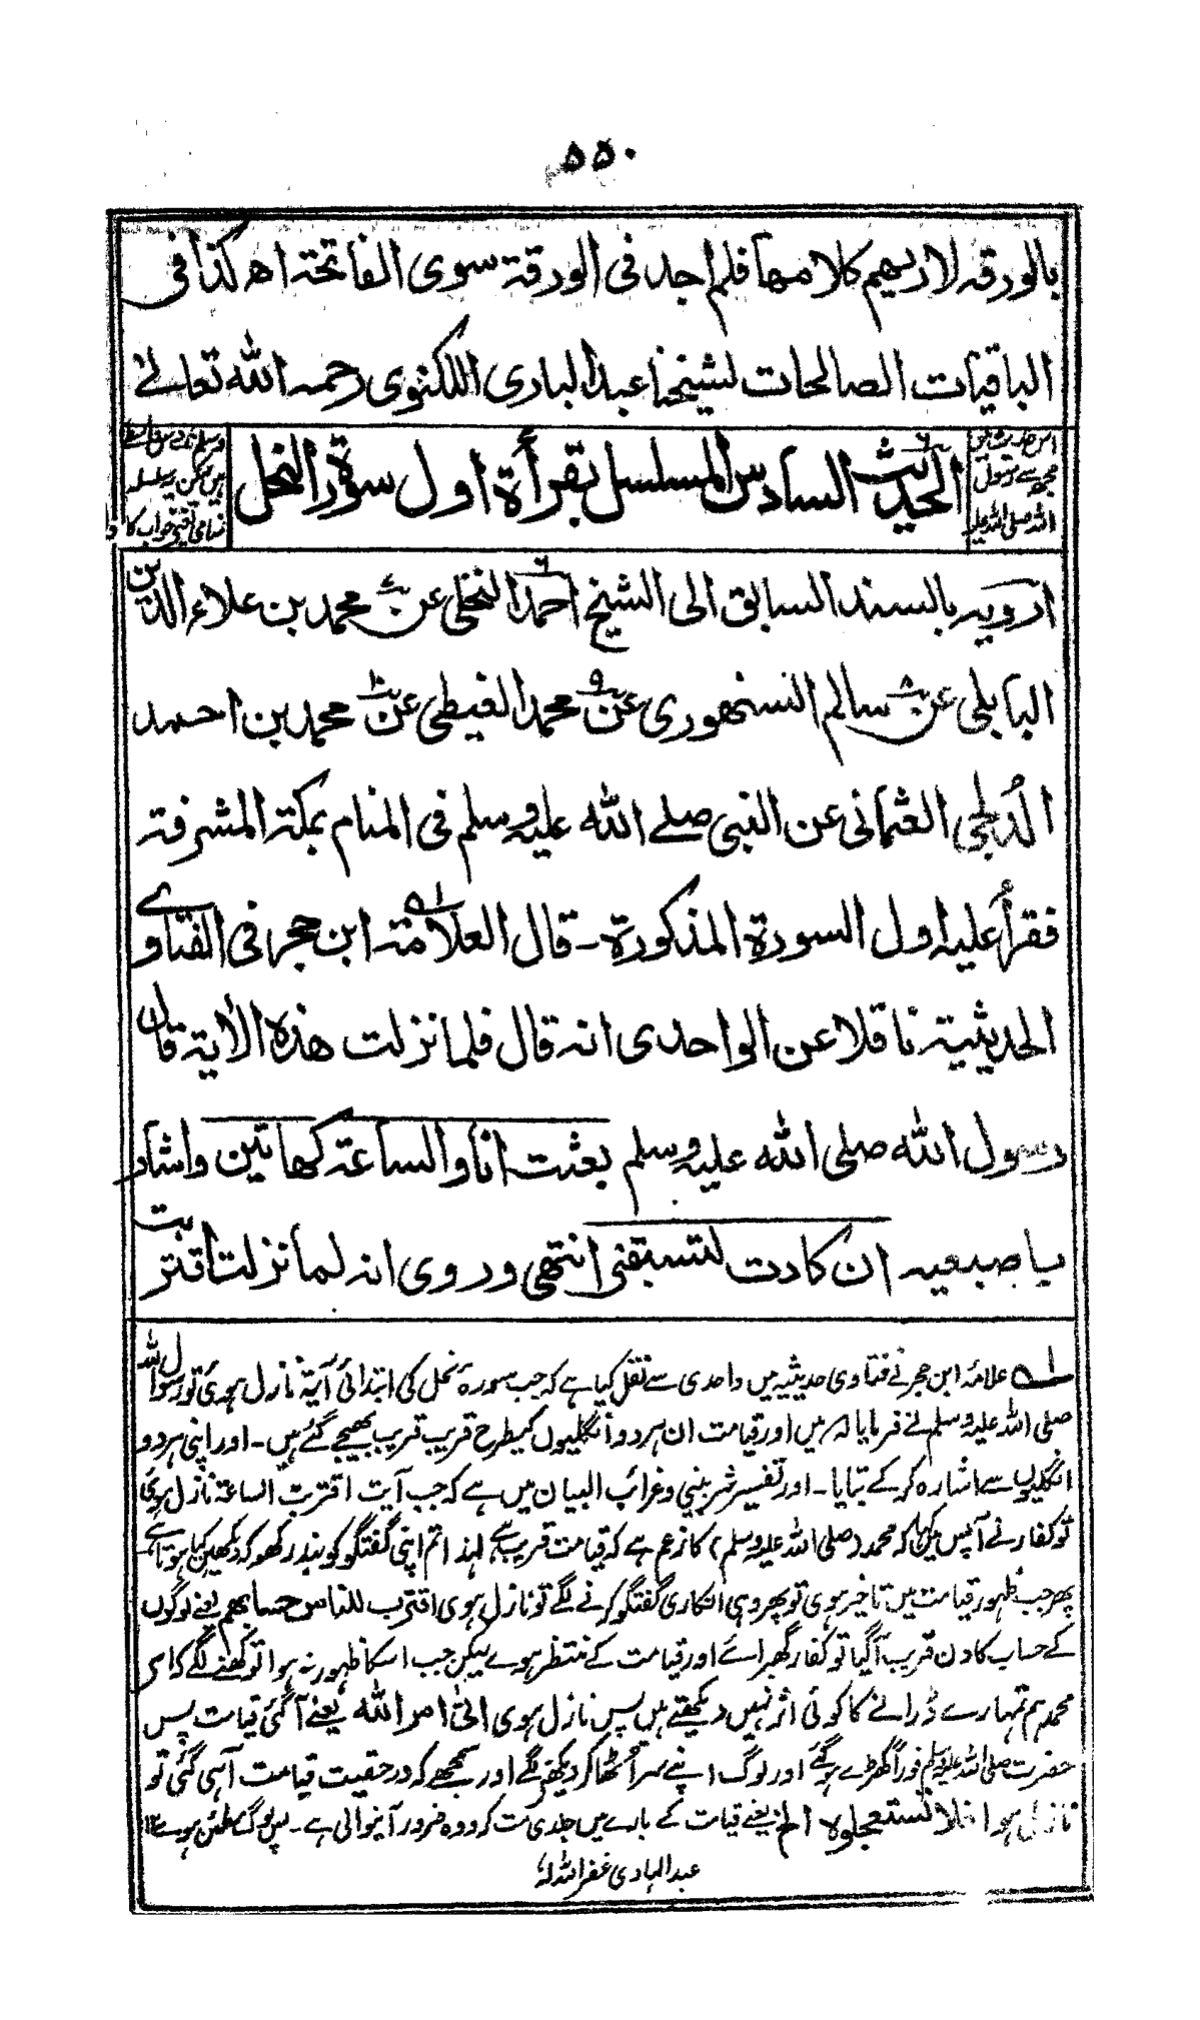 ۵۵۰
بالورقہ لاریھم کلامھا فلم اجد فی الورقۃ سوی الفاتحۃ اھ کذا فی
الباقیات الصالحات لشیخنا عبد الباری اللکنوی رحمہ اللہ تعالیٰ
اس حدیث میں
مجھ سے رسول
اللہ صلی اللہ علیہ
الحدیث السادس المسلسل بقرأۃ اول سورۃ النحل
وسلم تک دس واسطے
ہیں لیکن یہ سلسلہ
ارویہ بالسند السابق الی الشیخ احمد النخلی عن محمد بن علاء الدین
البابلی عن سالم السنھوری عن محمد الغیطی عن محمد بن احمد
الدلجی العثمانی عن النبی صلے اللہ علیہ وسلم فی المنام بمکۃ المشرفۃ
فقرأ علیہ اول السورۃ المذکورۃ ۔ قال العلامۃ ابن حجر فی الفتاوے
الحدیثیۃ ناقلا عن الواحدی انہ قال فلما نزلت ھذہ الأیۃ قال
رسول اللہ صلی اللہ علیہ وسلم بعثت انا والساعۃ کھاتین واشار
باصبعیہ ان کادت لتسبقنی انتھی وروی انہ لما نزلت اقتربت
۱ے علامہ ابن حجر نے فتاوی حدیثیہ میں واحدی سے نقل کیا ہے کہ جب سورۂ نحل کی ابتدائی آیۃ نازل ہوئی تو رسول اللہ
صلی اللہ علیہ وسلم نے فرمایا کہ میں اور قیامت ان ہر دو انگلیوں کیطرح قریب قریب بھیجے گئے ہیں ۔ اور اپنی ہر دو
انگلیوں سے اشارہ کر کے بتایا ۔ اور تفسیر شربینی و غرائب البیان میں ہے کہ جب آیت اقتربت الساعۃ نازل ہوئی
تو کفار نے آپس میں کہا کہ محمد (صلی اللہ علیہ وسلم) کا زعم ہے کہ قیامت قریب ہے لہذا تم اپنی گفتگو کو بند رکھو کہ دیکھیں کیا ہوتا ہے
پھر جب ظہور قیامت میں تاخیر ہوی تو پھر وہی انکاری گفتگو کرنے لگے تو نازل ہوی اقترب للناس حسابھم یعنے لوگوں
کے حساب کا دن قریب آگیا تو کفار گھبرائے اور قیامت کے منتظر ہوے لیکن جب اسکا ظہور نہ ہوا تو کہنے لگے کہ اے
محمد ہم تمہارے ڈرانے کا کوئی اثر نہیں دیکھتے ہیں پس نازل ہوی اتی امر اللہ یعنے آگئی قیامت پس
حضرت صلی اللہ علیہ وسلم فوراً کھڑے ہو گئے اور لوگ اپنے سر اٹھا کر دیکھنے لگے اور سمجھے کہ درحقیقت قیامت آہی گئی تو
نازل ہوا فلا تستعجلوہ الخ یعنے قیامت کے بارے میں جلدی مت کرو وہ ضرور آنیوالی ہے ۔ پس لوگ مطمئن ہوے ۱۲
عبد الہادی غفر اللہ لہٗ